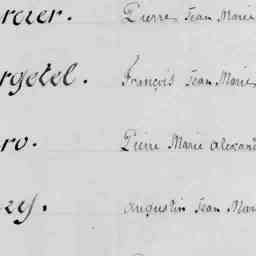 rcier. Pierre Jean Marie
rgetel. François Jean Marie
ro. Pierre Marie alexand
Augustin Jean Mari